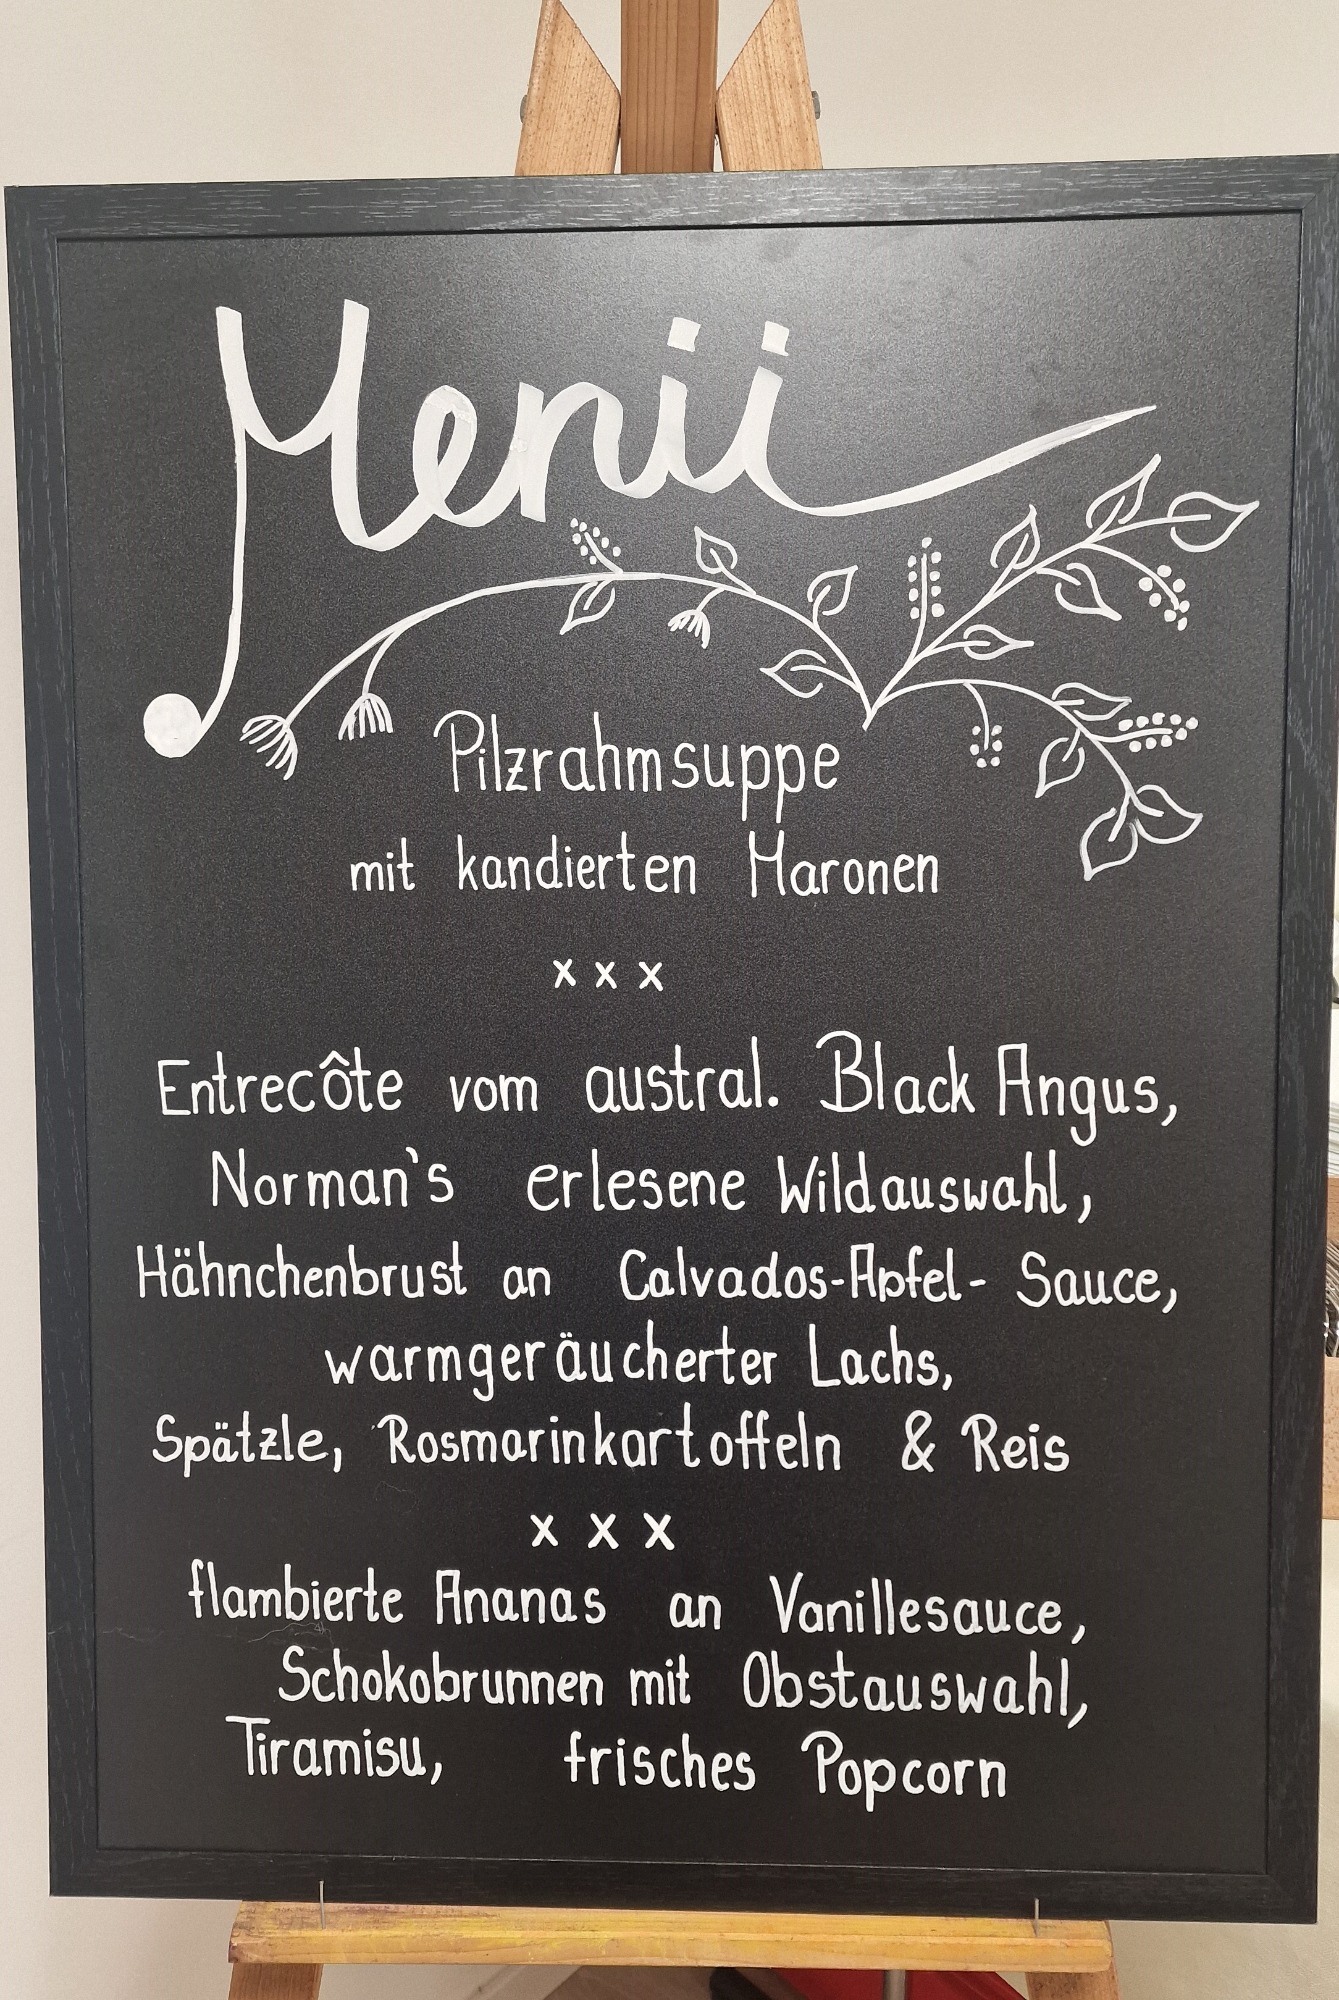 Menü
Pilzrahmsuppe
mit kandierten Maronen
x x x
Entrecôte vom austral. Black Angus,
Norman's erlesene Wildauswahl,
Hähnchenbrust an Calvados-Apfel-Sauce,
warmgeräucherter Lachs,
Spätzle, Rosmarinkartoffeln & Reis
x x x
flambierte Ananas an Vanillesauce,
Schokobrunnen mit Obstauswahl,
Tiramisu, frisches Popcorn